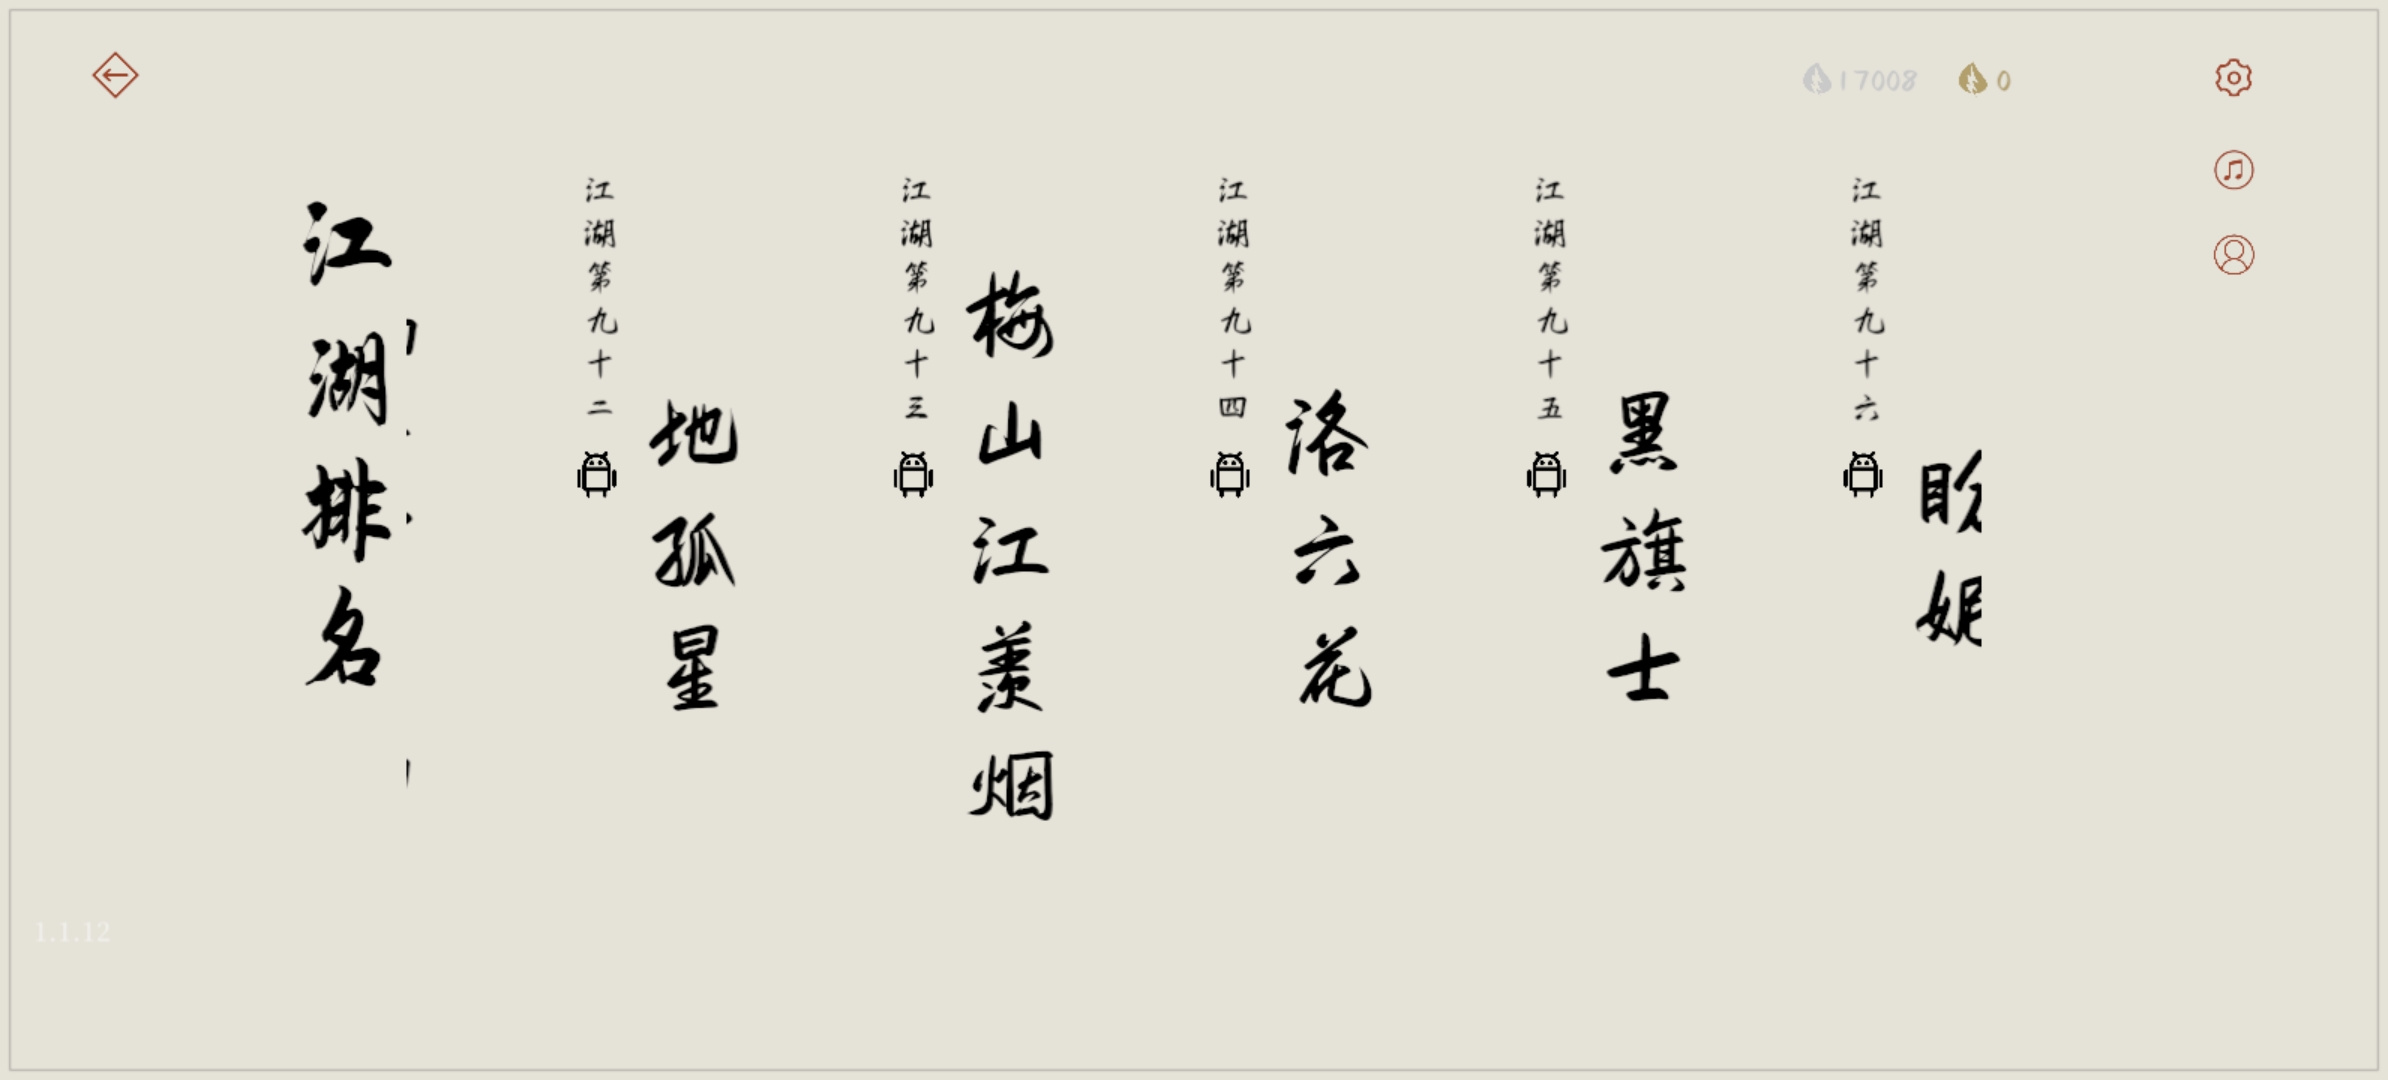 17008
0
江湖排名
江湖第九十二
地孤星
江湖第九十三
梅山江羨烟
江湖第九十四
洛六花
江湖第九十五
黑旗士
江湖第九十六
盼妮
1.1.12